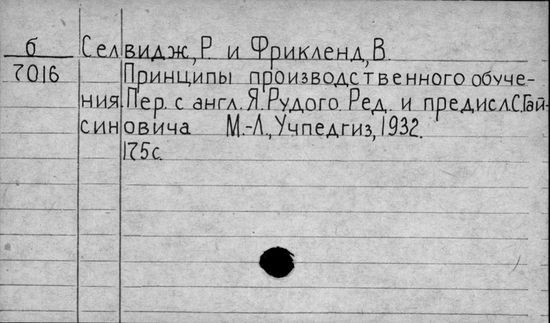 б Селвидж, Р. и Фрикленд, В.
7016 Принципы производственного обуче-
ния. Пер. с англ. Я. Рудого. Ред. и предисл. С. Гай-
синовича М.-Л., Учпедгиз, 1932.
175с.